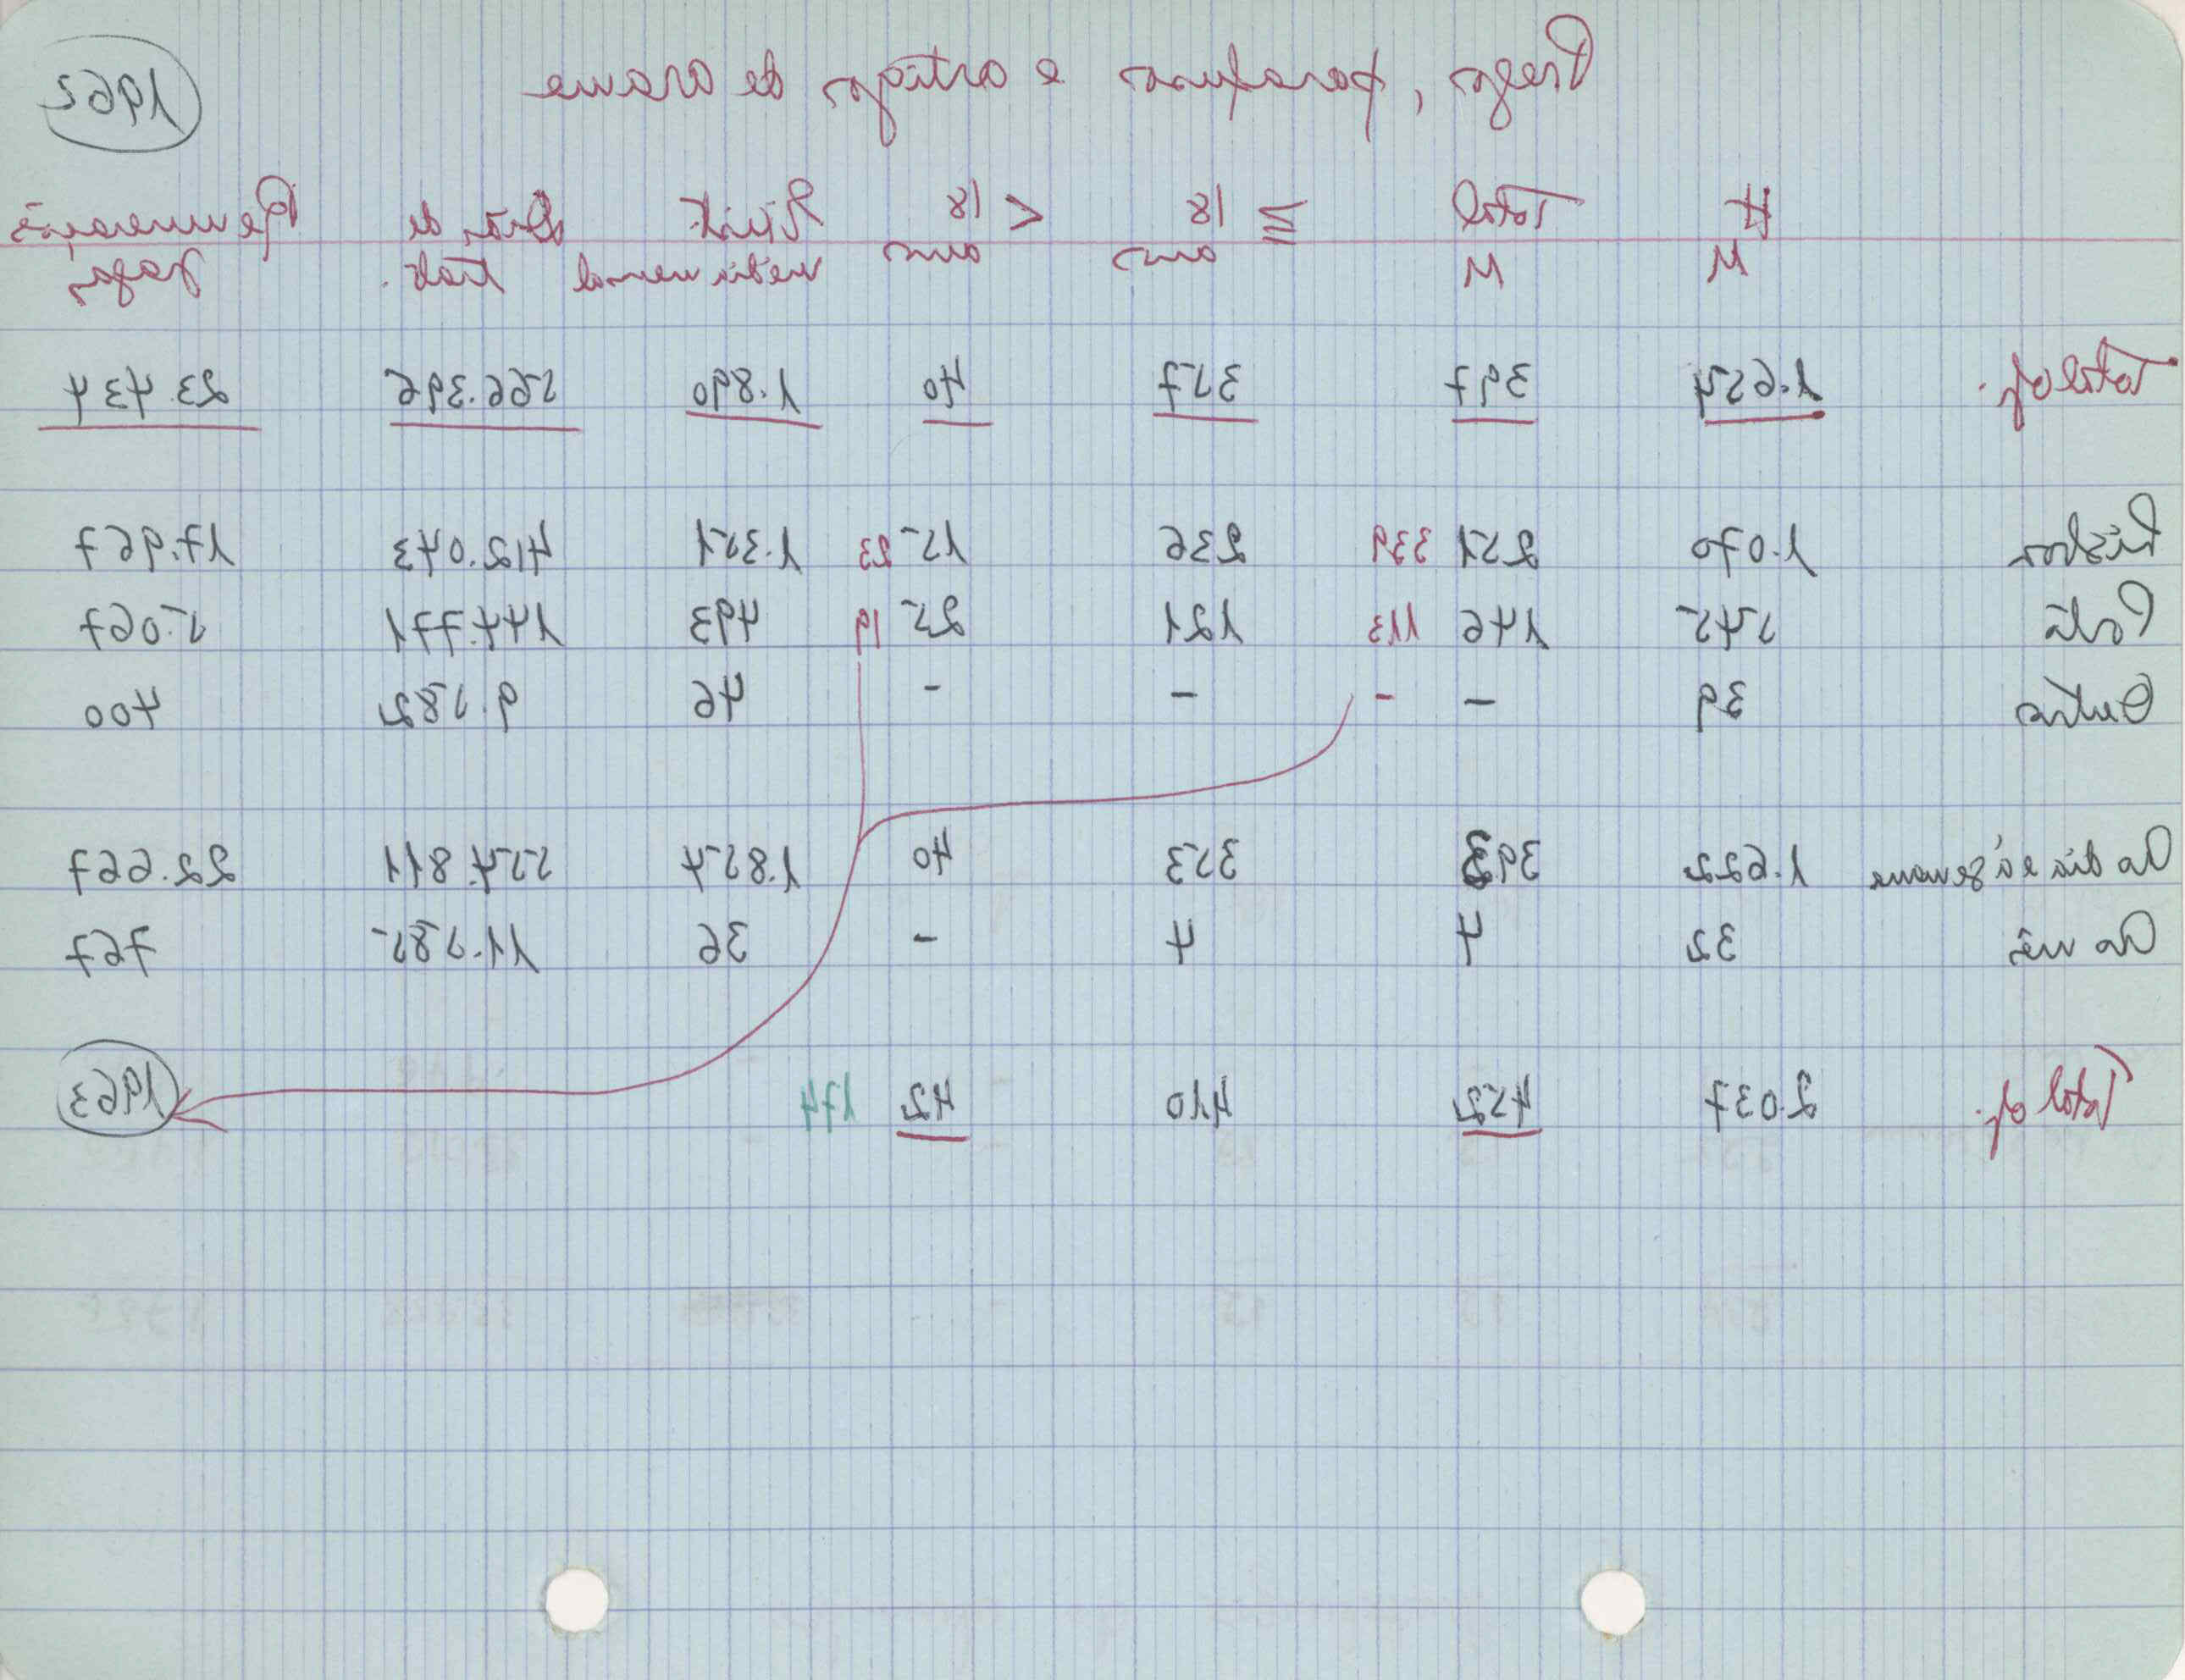 Pregos, parafusos e artigos de arame 1962
H Total ≧ 18 < 18 Dias de Remunerações
M M anos anos média mensal trab. pagas
Total of. 1.654 397 357 40 1.890 566.396 23.434
Lisboa 1.070 251 339 236 15 23 1.351 412.043 17.967
Porto 545 146 113 121 25 19 493 144.771 5.067
Outros 39 - - - - 46 9.582 400
Ao dia e à semana 1.622 393 353 40 1.854 554.811 22.667
Ao mês 32 4 4 - 36 11.585 767
Total of. 2.037 452 410 42 174 1963